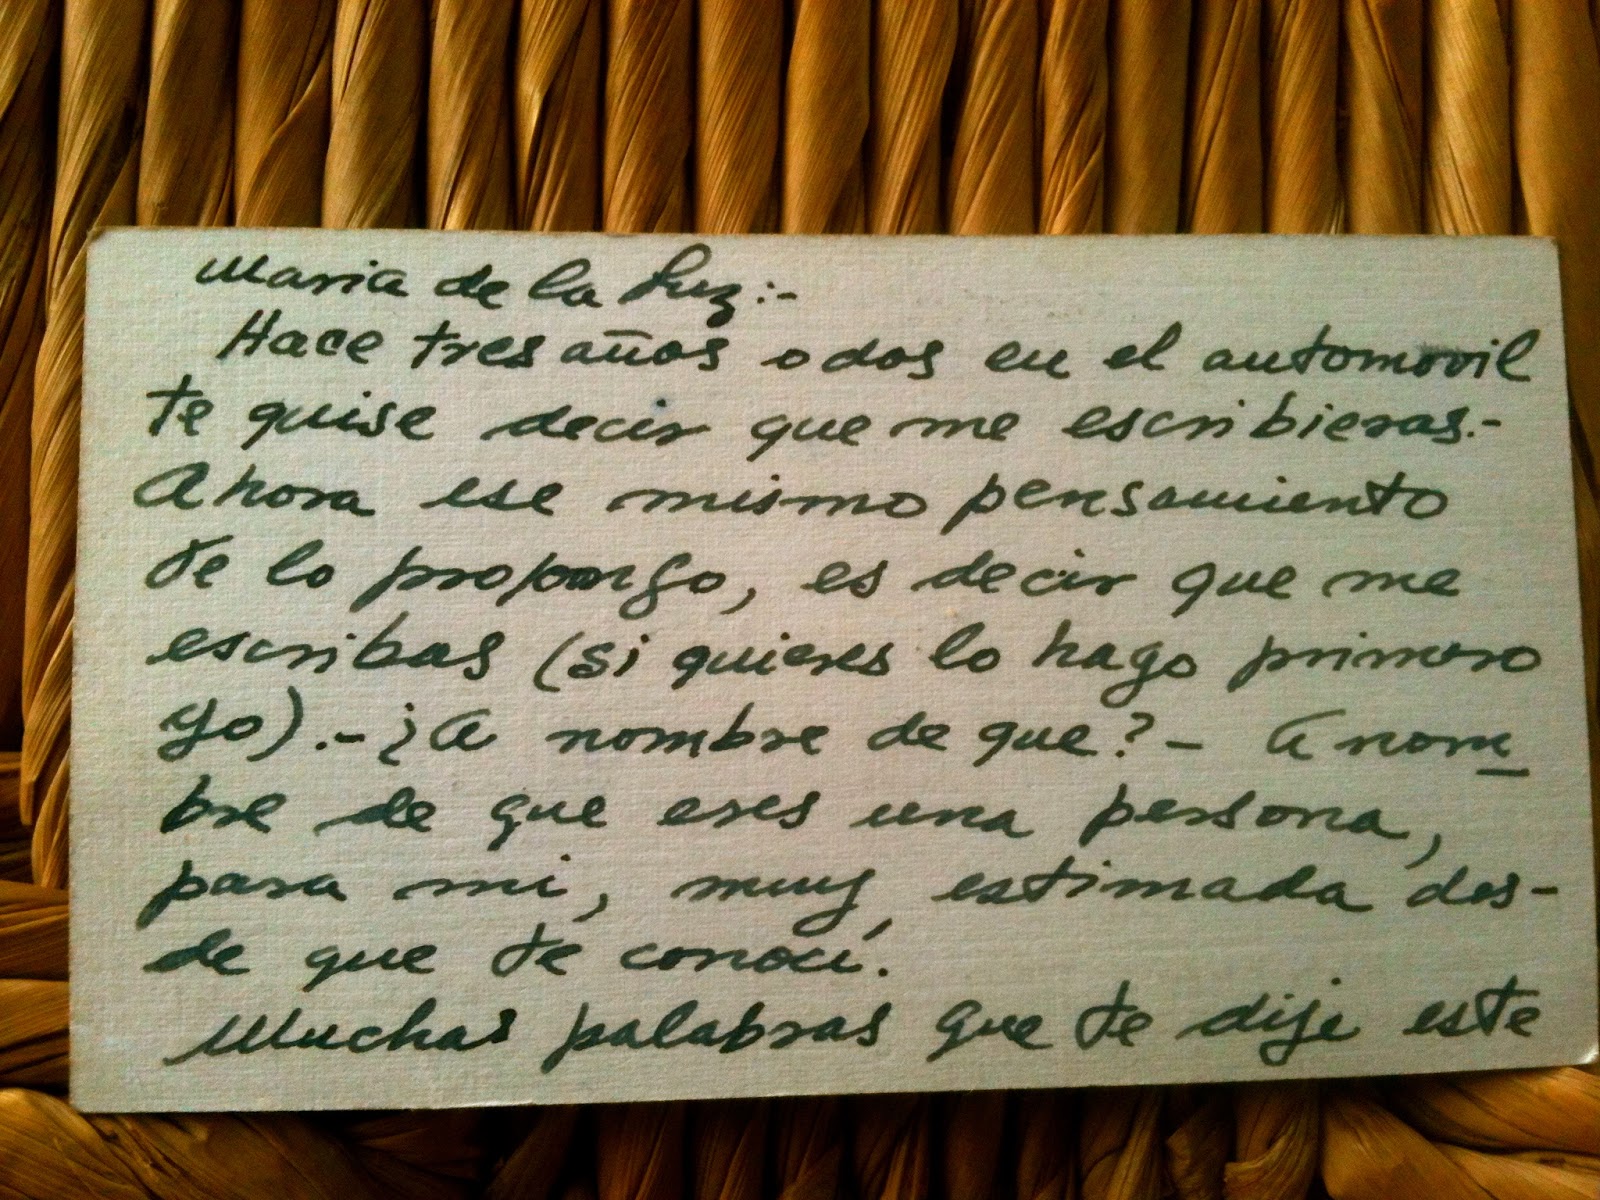 Maria de la Luz:-
Hace tres años o dos en el automovil
te quise decir que me escribieras.-
Ahora ese mismo pensamiento
te lo propongo, es decir que me
escribas (si quieres lo hago primero
yo).-¿A nombre de que?- A nom
bre de que eres una persona,
para mi, muy, estimada des-
de que te conocí.
Muchas palabras que te dije este